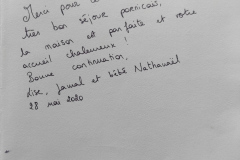 Merci pour ce
très bon séjour pornicais,
la maison est parfaite et votre
accueil chaleureux !
Bonne continuation,
Lise, Jamal et bébé Nathanaël
28 mai 2020